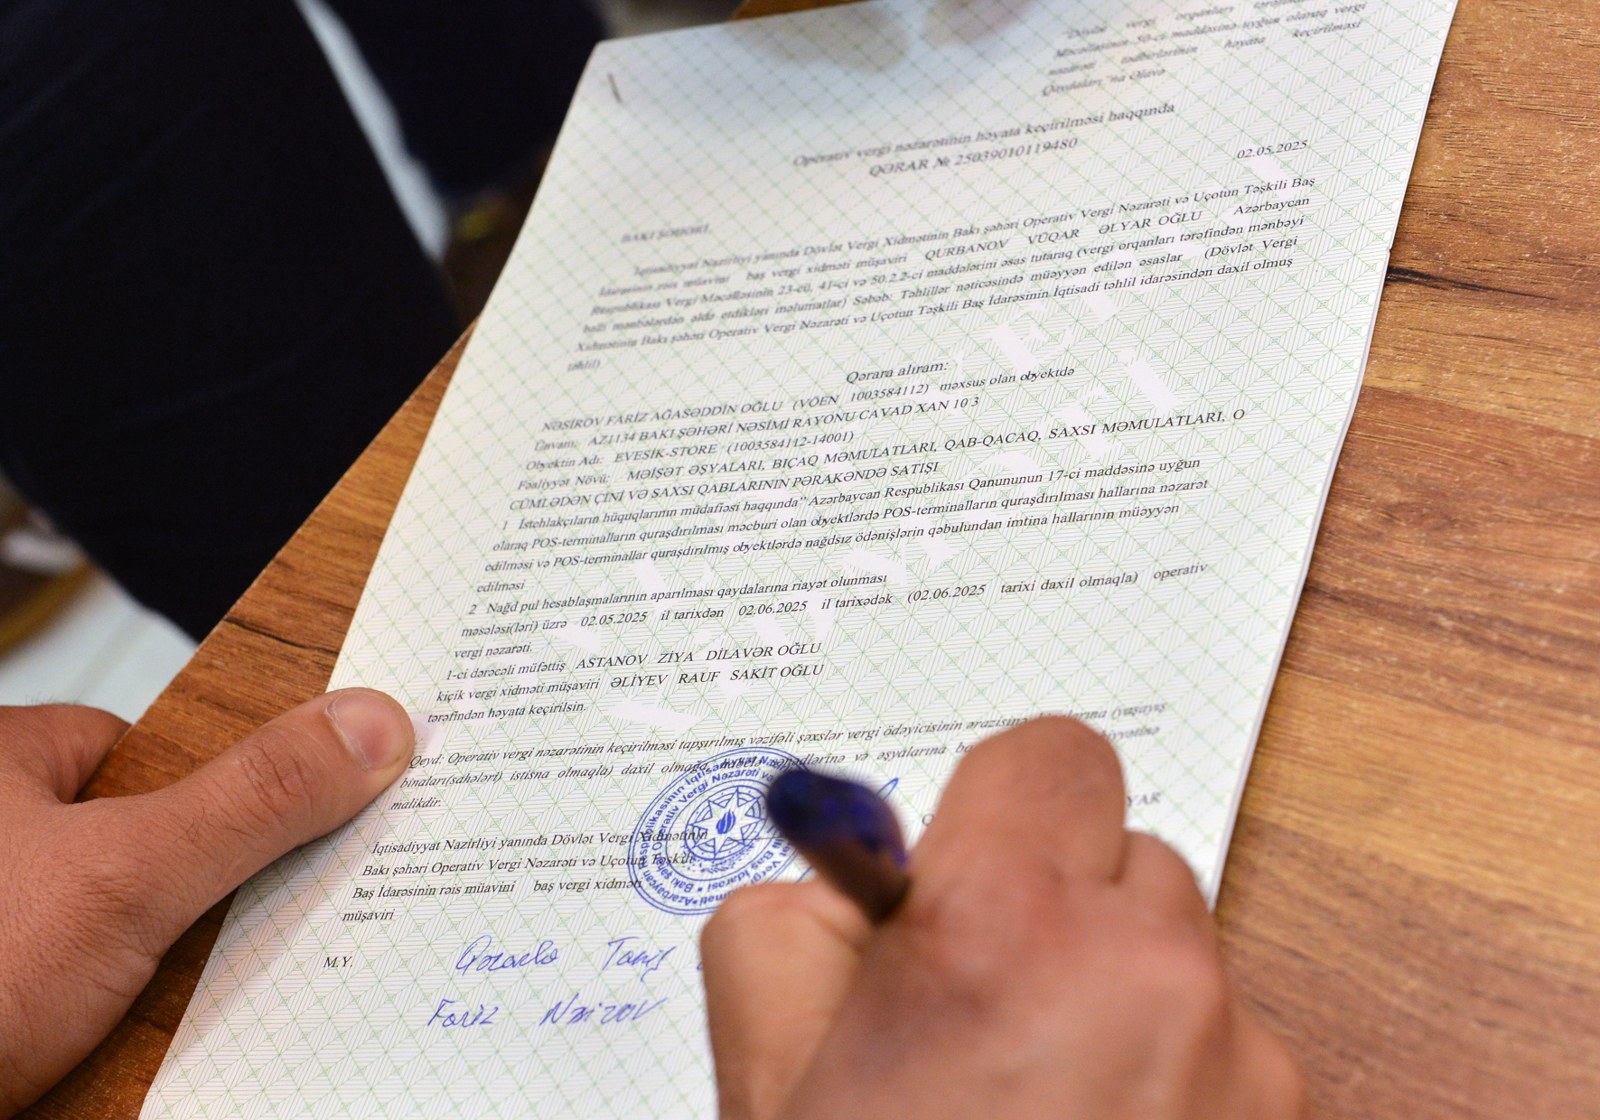 "Dövlət vergi orqanları tərəfindən
Məcəlləsinin 50-ci maddəsinə uyğun olaraq vergi
nəzarəti tədbirlərinin həyata keçirilməsi
Qaydaları"na Əlavə
Operativ vergi nəzarətinin həyata keçirilməsi haqqında
QƏRAR № 25039010119480
02.05.2025
BAKI ŞƏHƏRİ,
İqtisadiyyat Nazirliyi yanında Dövlət Vergi Xidmətinin Bakı şəhəri Operativ Vergi Nəzarəti və Uçotun Təşkili Baş
İdarəsinin rəis müavini baş vergi xidməti müşaviri QURBANOV VÜQAR ƏLYAR OĞLU Azərbaycan
Respublikası Vergi Məcəlləsinin 23-cü, 41-ci və 50.2.2-ci maddələrini əsas tutaraq (vergi orqanları tərəfindən mənbəyi
bəlli mənbələrdən əldə etdikləri məlumatlar) Səbəb: Təhlillər nəticəsində müəyyən edilən əsaslar (Dövlət Vergi
Xidmətinin Bakı şəhəri Operativ Vergi Nəzarəti və Uçotun Təşkili Baş İdarəsinin İqtisadi təhlil idarəsindən daxil olmuş
təhlil)
Qərara alıram:
NƏSİROV FARİZ AĞASƏDDİN OĞLU (VÖEN 1003584112) məxsus olan obyektdə
Ünvanı: AZ1134 BAKI ŞƏHƏRİ NƏSİMİ RAYONU CAVAD XAN 10 3
Obyektin Adı: EVESİK-STORE (1003584112-14001)
Fəaliyyət Növü: MƏİŞƏT ƏŞYALARI, BIÇAQ MƏMULATLARI, QAB-QACAQ, SAXSI MƏMULATLARI, O
CÜMLƏDƏN ÇİNİ VƏ SAXSI QABLARININ PƏRAKƏNDƏ SATIŞI
1 İstehlakçıların hüquqlarının müdafiəsi haqqında" Azərbaycan Respublikası Qanununun 17-ci maddəsinə uyğun
olaraq POS-terminalların quraşdırılması məcburi olan obyektlərdə POS-terminalların quraşdırılması hallarına nəzarət
edilməsi və POS-terminallar quraşdırılmış obyektlərdə nağdsız ödənişlərin qəbulundan imtina hallarının müəyyən
edilməsi
2 Nağd pul hesablaşmalarının aparılması qaydalarına riayət olunması
məsələsi(ləri) üzrə 02.05.2025 il tarixdən 02.06.2025 il tarixədək (02.06.2025 tarixi daxil olmaqla) operativ
vergi nəzarəti.
1-ci dərəcəli müfəttiş ASTANOV ZİYA DİLAVƏR OĞLU
kiçik vergi xidməti müşaviri ƏLİYEV RAUF SAKİT OĞLU
tərəfindən həyata keçirilsin.
Qeyd: Operativ vergi nəzarətinin keçirilməsi tapşırılmış vəzifəli şəxslər vergi ödəyicisinin ərazisinə (yaşayış
binaları(sahələri) istisna olmaqla) daxil olmağa, və əşyalarına
malikdir.
İqtisadiyyat Nazirliyi yanında Dövlət Vergi Xidmətinin
Bakı şəhəri Operativ Vergi Nəzarəti və Uçotun Təşkili
Baş İdarəsinin rəis müavini baş vergi xidməti
müşaviri
M.Y.
Qərarla Tanış
Fariz Nəsirov